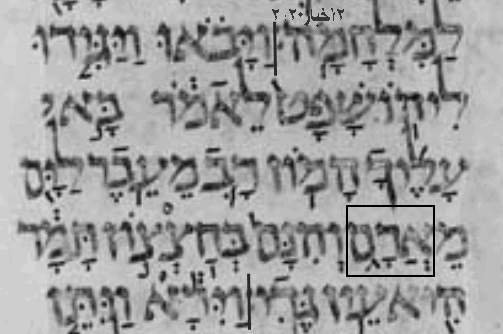 ٢اخبار٢٠:٢
לַמִּלְחָמָה וַיָּבֹאוּ וַיַּגִּידוּ
לִיהוֹשָׁפָט לֵאמֹר בָּא
עָלֶיךָ הָמוֹן רָב מֵעֵבֶר לַיָּם
מֵאֲרָם וְהִנָּם בְּחַצְצוֹן תָּמָר
הִיא עֵין גֶּדִי וַיִּרָא וַיִּתֵּן